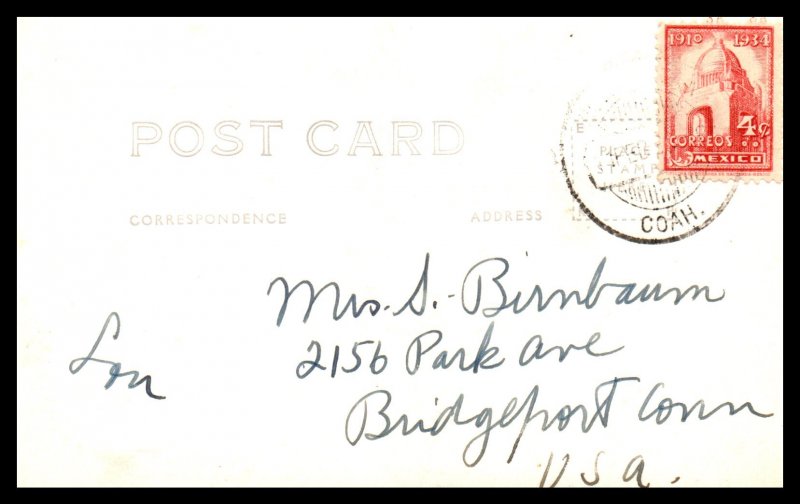 1910 1934
4¢
CORREOS
MEXICO
POST CARD
PLACE
STAMP
COAH.
CORRESPONDENCE ADDRESS
Mrs. S. Birnbaum
2156 Park Ave
Lou
Bridgeport Conn
USA.